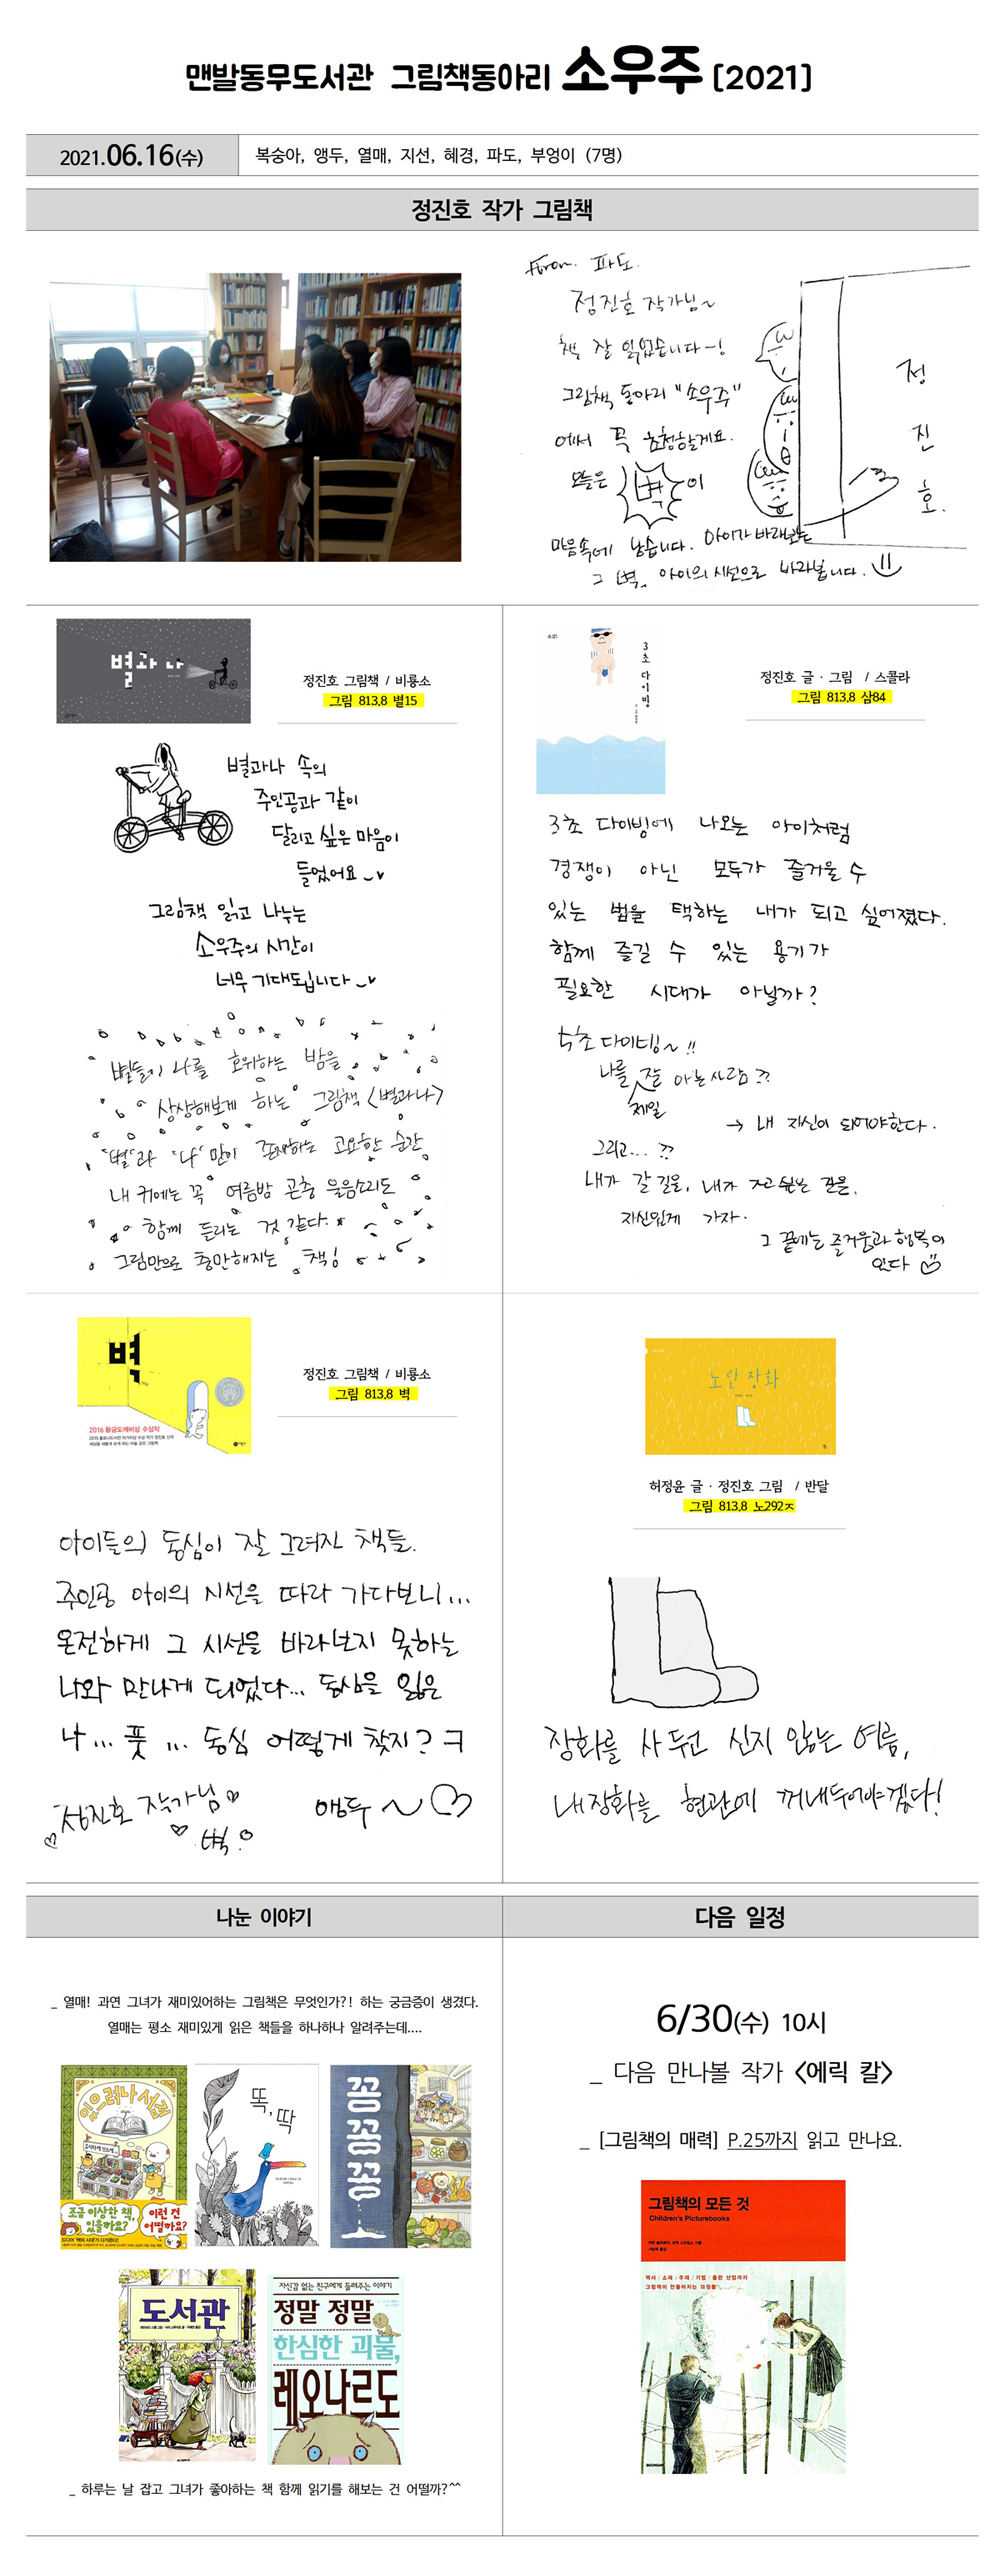 맨발동무도서관 그림책동아리 소우주 [2021]
2021.06.16(수)
복숭아, 앵두, 열매, 지선, 혜경, 파도, 부엉이 (7명)
정진호 작가 그림책
From. 파도.
정진호 작가님~
책 잘 읽었습니다~!
그림책 동아리 "소우주"
에서 꼭 초청할게요.
모들은 벽이
마음속에 남습니다. 아이가 바래보는
그 벽, 아이의 시선으로 바라봅니다.
정
진
호.
별과 나
정진호 그림책 / 비룡소
그림 813.8 별15
별과나 속의
주인공과 같이
달리고 싶은 마음이
들었어요
그림책 읽고 나누는
소우주의 시간이
너무 기대됩니다
별들이 나를 호위하는 밤을
상상해보게 하는 그림책 <별과나>
'별'과 '나'만이 존재하는 고요한 순간
내 귀에는 꼭 여름밤 곤충 울음소리도
함께 들리는 것 같다.
그림만으로 충만해지는 책!
3초 다이빙
정진호 글·그림 / 스콜라
그림 813.8 삼84
3초 다이빙에 나오는 아이처럼
경쟁이 아닌 모두가 즐거울 수
있는 법을 택하는 내가 되고 싶어졌다.
함께 즐길 수 있는 용기가
필요한 시대가 아닐까?
5초 다이빙~!!
나를 제일 잘 아는 사람??
→ 내 자신이 되어야한다.
그리고...??
내가 갈 길을, 내가
자신있게 가자.
그 끝에는 즐거움과 행복이
있다
벽
2016 황금도깨비상 수상작
정진호 그림책 / 비룡소
그림 813.8 벽
아이들의 동심이 잘 그려진 책들.
주인공 아이의 시선을 따라 가다보니...
온전하게 그 시선을 바라보지 못하는
나와 만나게 되었다... 동심을 잃은
나... 풋... 동심 어떻게 찾지? ㅋ
정진호 작가님
벽.
앵두~
노란 장화
허정윤 글·정진호 그림 / 반달
그림 813.8 노292ㅈ
장화를 사 두면 신지 않는 여름,
내 장화를 현관에 꺼내두어야겠다!
나눈 이야기
_ 열매! 과연 그녀가 재미있어하는 그림책은 무엇인가?! 하는 궁금증이 생겼다.
열매는 평소 재미있게 읽은 책들을 하나하나 알려주는데....
있으려나 서점
조금 이상한 책, 있을까요?
이런 건 어떨까요?
똑, 딱
꽁꽁꽁
도서관
자신감 없는 친구에게 들려주는 이야기
정말 정말
한심한 괴물,
레오나르도
_ 하루는 날 잡고 그녀가 좋아하는 책 함께 읽기를 해보는 건 어떨까?^^
다음 일정
6/30(수) 10시
_ 다음 만나볼 작가 <에릭 칼>
_ [그림책의 매력] P.25까지 읽고 만나요.
그림책의 모든 것
Children's Picturebooks
역사 / 소재 / 주제 / 기법 / 출판 산업까지
그림책이 만들어지는 과정들